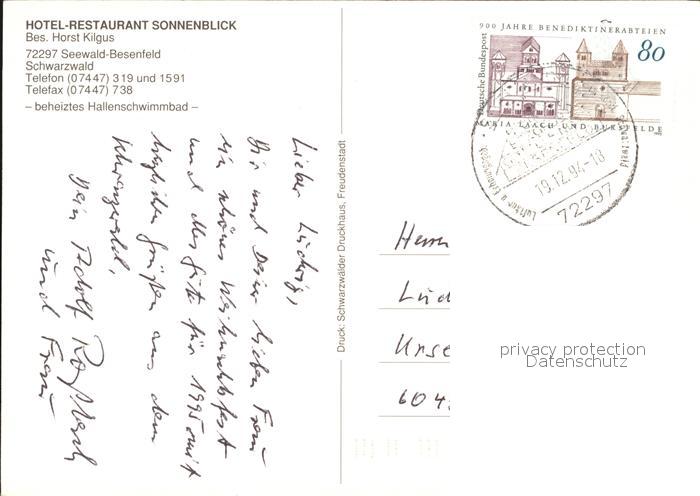 HOTEL-RESTAURANT SONNENBLICK
Bes. Horst Kilgus
72297 Seewald-Besenfeld
Schwarzwald
Telefon (07447) 319 und 1591
Telefax (07447) 738
– beheiztes Hallenschwimmbad –
Lieber Ludwig,
Dir und Deiner lieben Frau
ein schönes Weihnachtsfest
und alles Gute für 1995 mit
herzlichen Grüßen aus dem
Schwarzwald,
Dein Adolf
und Frau
Druck: Schwarzwälder Druckhaus, Freudenstadt
900 JAHRE BENEDIKTINERABTEIEN
Deutsche Bundespost
80
MARIA LAACH UND BURSFELDE
19.12.94-18
72297
Luftkur u Erholungsort
Herrn
Lud
Unse
604
privacy protection
Datenschutz